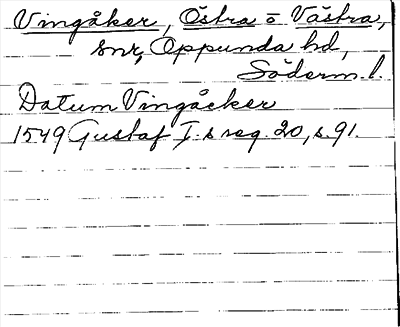 Vingåker, Östra o Västra,
snr, Oppunda hd,
Söderm. l.
Datum Vingåcker
1549 Gustaf I:s reg. 20, s. 91.